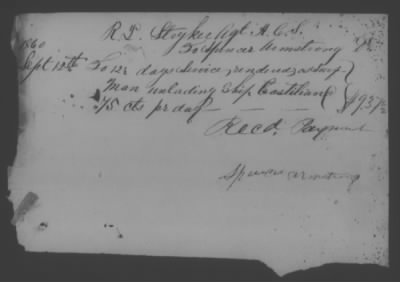 R. T. Stryker Agt. A. C. S.
To Spencer Armstrong Dr.
1860
Sept 12th To 12½ days service rendered as
Man unloading Ship Castilian
75 cts pr day $9.37½
Recd. Payment
Spencer Armstrong